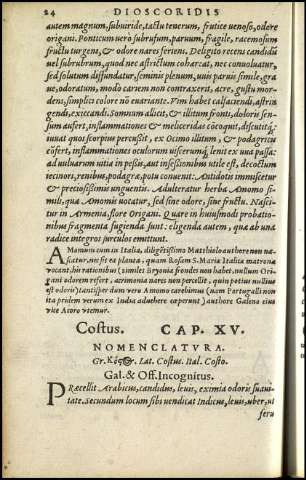 24 DIOSCORIDIS
autem magnum, subuiride, tactu tenerum, frutice uenoso, odere
origani. Ponticum uero subrufum, paruum, fragile, racemosum
fructu turgens, & odore nares feriens. Deligito recens candidū
uel subrubrum, quod nec astrictum cohæreat, nec conuoluatur,
sed solutum diffundatur, seminis plenum, uuis paruis simile, gra
ue, odoratum, modò cariem non contraxerit, acre, gustu mor-
dens, simplici colore nō euariante. Vim habet calfaciendi, astrin
gendi, exiccandi. Somnum allicit, & illitum fronti, doloris sen-
sum aufert, inflammationes & meliceridas cöcoquit, discutitq;
iuuat quos scorpius percussit, ex Ocimo illitum, & podagricis
cōfert, inflammationes oculorum uiscerumq; lenit ex uua passa:
ad uuluarum uitia in pessis, aut insessionibus utile est, decoctum
iecinori, renibus, podagræ, potu conuenit: Antidotis immiscetur
& preciosissimis unguentis. Adulteratur herba Amomo si-
mili, quæ Amomis uocatur, sed sine odore, sine fructu. Nasci-
tur in Armenia, flore Origani. Quare in huiusmodi probatio-
nibus fragmenta fugienda sunt: eligenda autem, quæ ab una
radice integros surculos emittunt.
AMomum cum in Italia, diligētissimo Matthiolo authore non na-
scatur, nec sit ea planta, quam Rosam S. Maria Italica matronæ
uocant, his rationibus (similes Bryoniæ frondes non habet, nullum Ori-
gani odorem refert, acrimonia nares non percellit, quin potius nullius
est odoris) tantisper dum vero Amomo carebimus (nam Portugalli non
ita pridem verum ex India aduehere cæperunt) authore Galeno eius
vice Acoro vtemur.
Costus. CAP. XV.
NOMENCLATVRA.
Gr. Κόςος. Lat. Costus. Ital. Costo.
Gal. & Off. Incognitus.
PRæcellit Arabicus, candidus, leuis, eximia odoris suaui-
tate. secundum locum sibi vendicat Indicus, leuis, uber, ut
feru